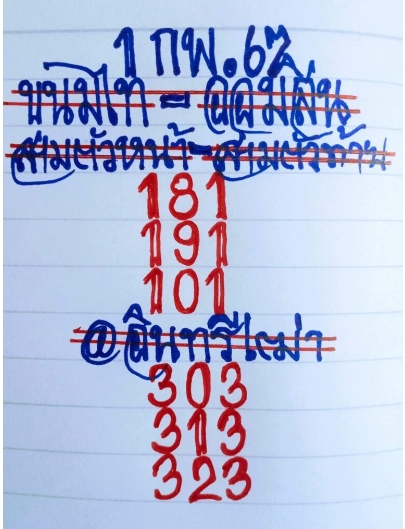 1 กพ.67
ขนมไท = ออมสิน
สามตัวหน้า-สามตัวท้าย
181
191
101
@อินทรีเฒ่า
303
313
323